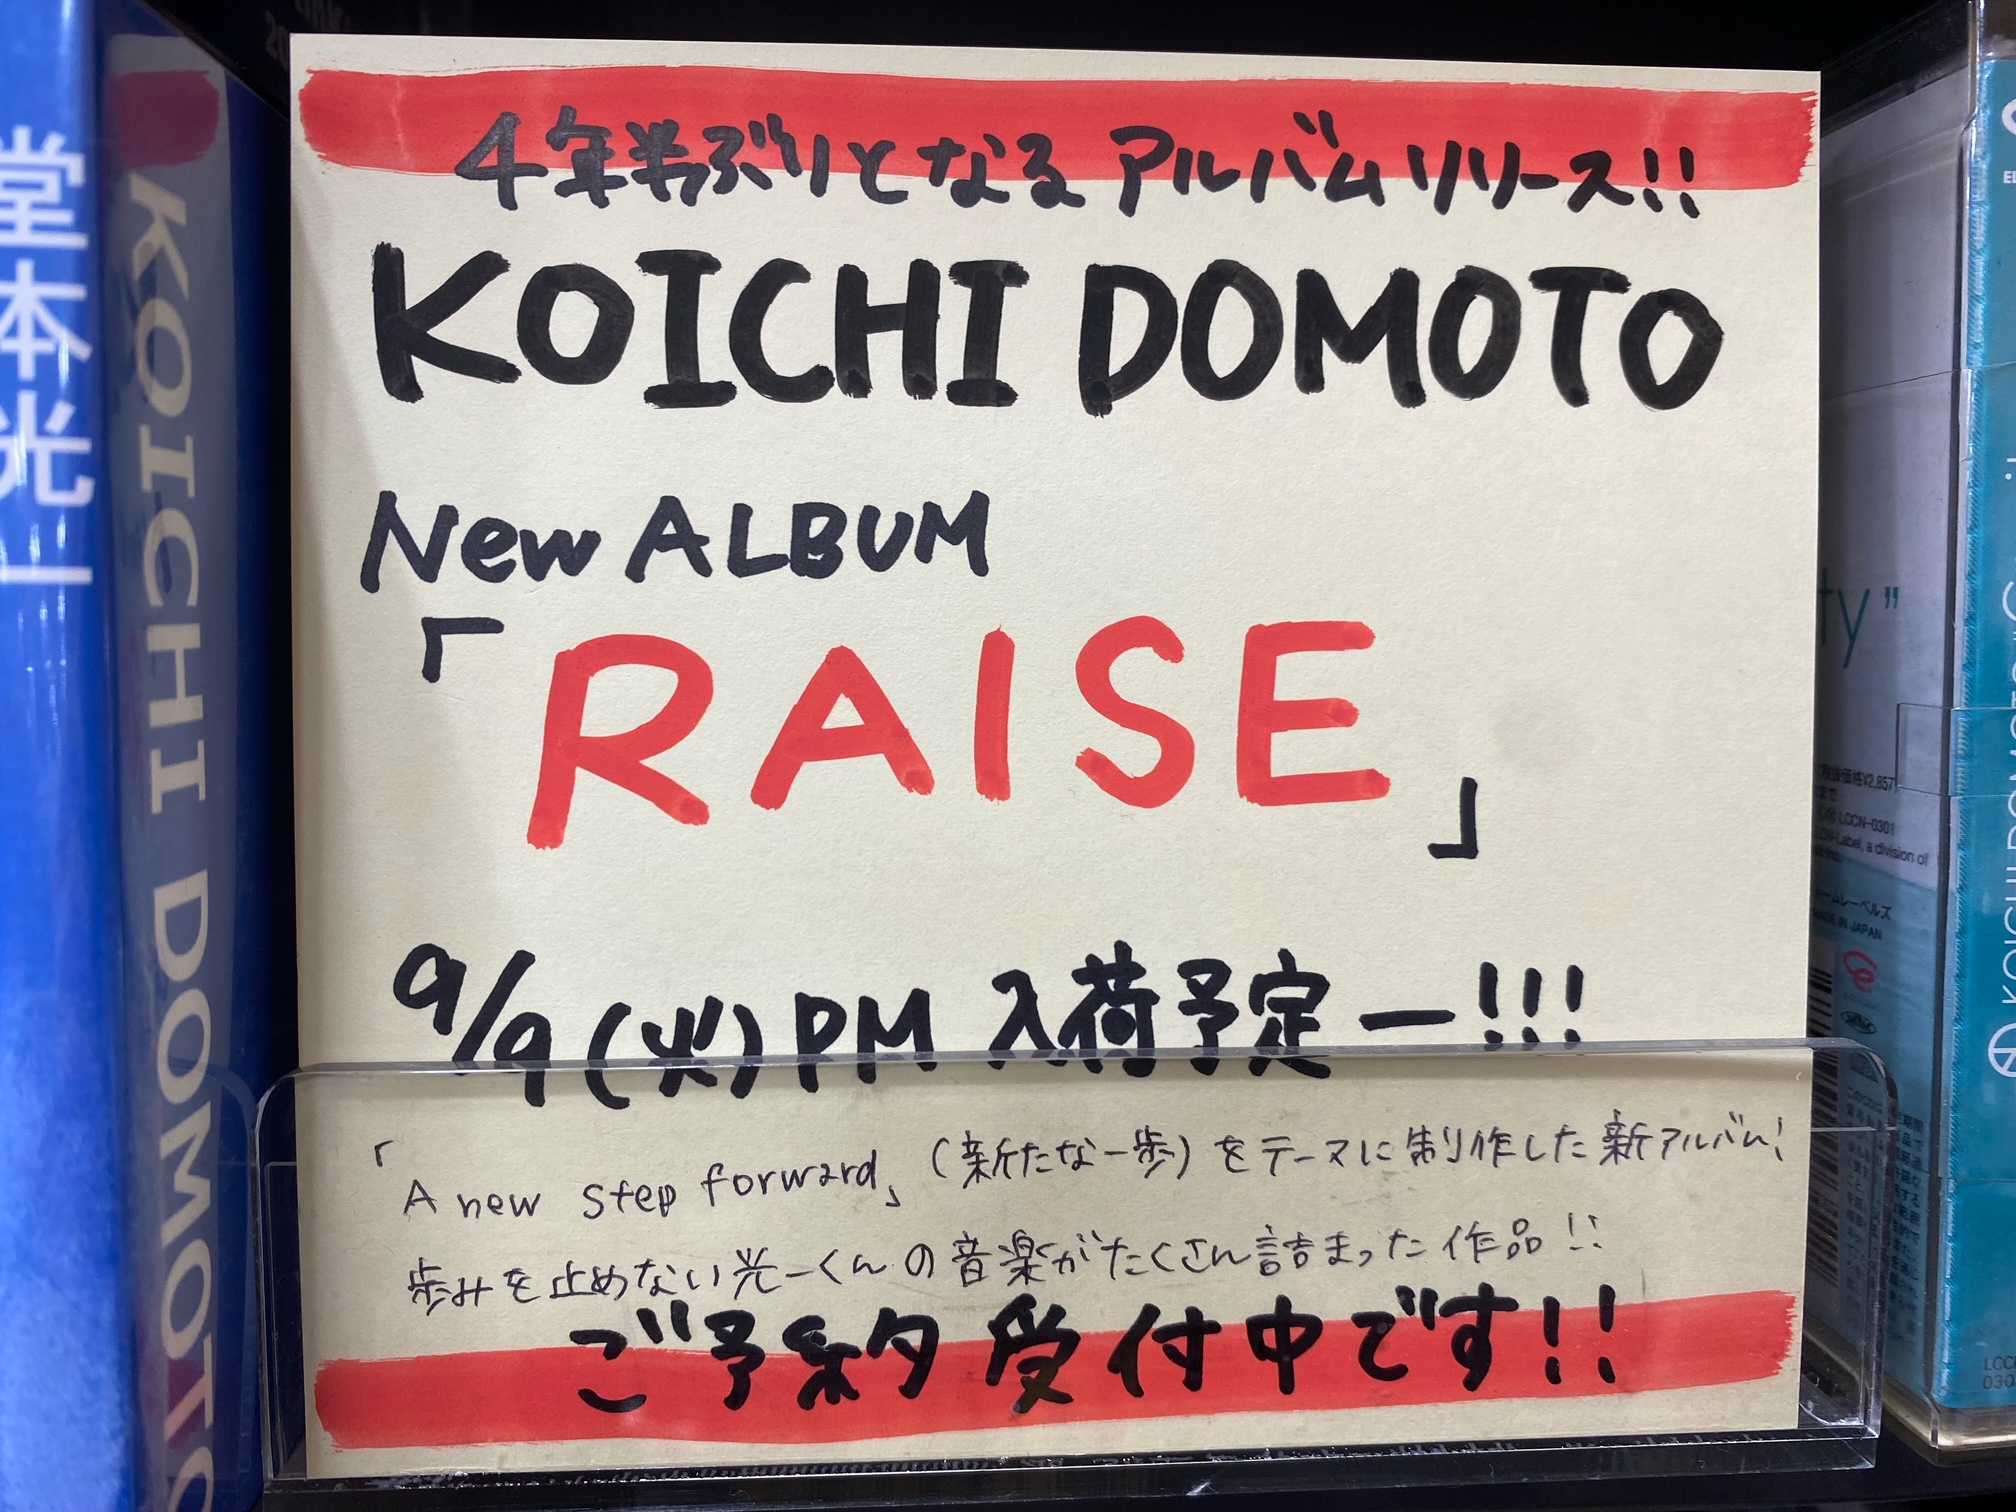 4年半ぶりとなるアルバムリリース!!
KOICHI DOMOTO
New ALBUM
「RAISE」
9/9(火)PM 入荷予定ー!!!
「A new step forward」(新たな一歩)をテーマに制作した新アルバム!
歩みを止めない光一くんの音楽がたくさん詰まった作品!!
ご予約受付中です!!
堂本光一
KOICHI DOMOTO
ty"
LCCN-0301
a division of
MADE IN JAPAN
KOICHI DOMOTO